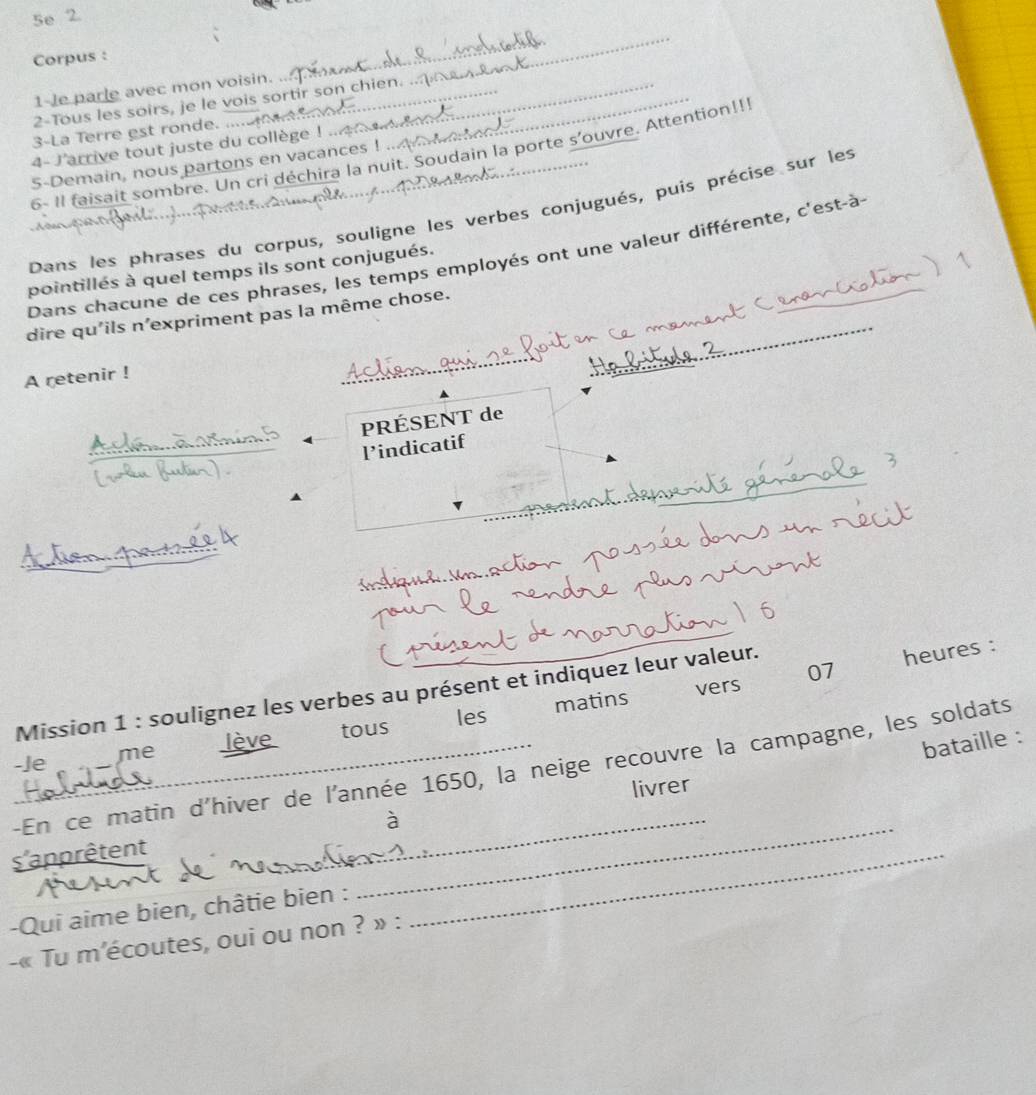 5e 2
Corpus :
1-Je parle avec mon voisin. ...présent de l'indicatif.
2-Tous les soirs, je le vois sortir son chien. ...présent
3-La Terre est ronde. ...présent
4- J'arrive tout juste du collège ! ...présent
5-Demain, nous partons en vacances ! ...présent
6- Il faisait sombre. Un cri déchira la nuit. Soudain la porte s'ouvre. Attention!!!
imparfait ; passé simple ; présent
Dans les phrases du corpus, souligne les verbes conjugués, puis précise sur les
pointillés à quel temps ils sont conjugués.
Dans chacune de ces phrases, les temps employés ont une valeur différente, c'est-à-
dire qu'ils n'expriment pas la même chose.
A retenir !
Action qui se fait en ce moment (énonciation) 1
Habitude 2
PRÉSENT de
l'indicatif
Action à venir 5
(valeur futur).
présent de vérité générale 3
Action passée 4
indique un action passée dans un récit
pour le rendre plus vivant
(présent de narration) 6
Mission 1 : soulignez les verbes au présent et indiquez leur valeur.
-Je me lève tous les matins vers 07 heures :
Habitude
-En ce matin d'hiver de l'année 1650, la neige recouvre la campagne, les soldats
s'apprêtent à livrer bataille :
présent de narration
-Qui aime bien, châtie bien :
-« Tu m'écoutes, oui ou non ? » :